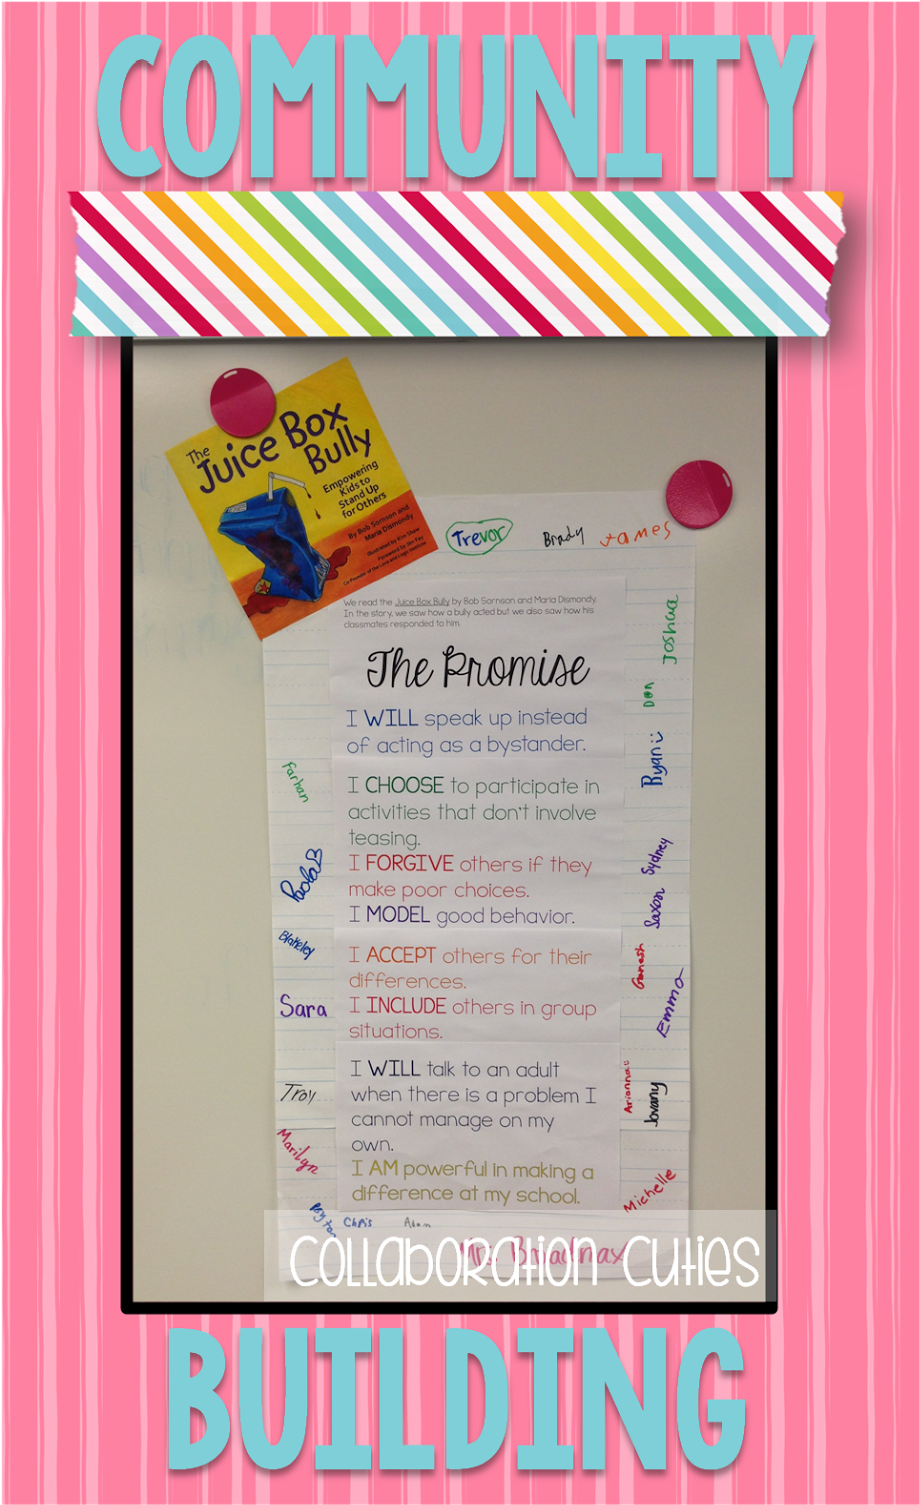 COMMUNITY
The
Juice Box
Bully
Empowering
Kids to
Stand Up
for Others
By Bob Sornson and
Maria Dismondy
Illustrated by Kim Shaw
Foreword by Jim Fay
Co-Founder of the Love and Logic Institute
Trevor
Brady
James
We read the Juice Box Bully by Bob Sornson and Maria Dismondy.
In the story, we saw how a bully acted but we also saw how his
classmates responded to him.
The Promise
I WILL speak up instead
of acting as a bystander.
I CHOOSE to participate in
activities that don't involve
teasing.
I FORGIVE others if they
make poor choices.
I MODEL good behavior.
I ACCEPT others for their
differences.
I INCLUDE others in group
situations.
I WILL talk to an adult
when there is a problem I
cannot manage on my
own.
I AM powerful in making a
difference at my school.
Joshua
Don
Ryan
Sydney
Saxon
Ganesh
Emma
Arianna
Jovany
Michelle
Farhan
Paola B
Blakeley
Sara
Troy
Marilyn
Peyton
Chris
Adam
Mrs. Broadmax
Collaboration Cuties
BUILDING